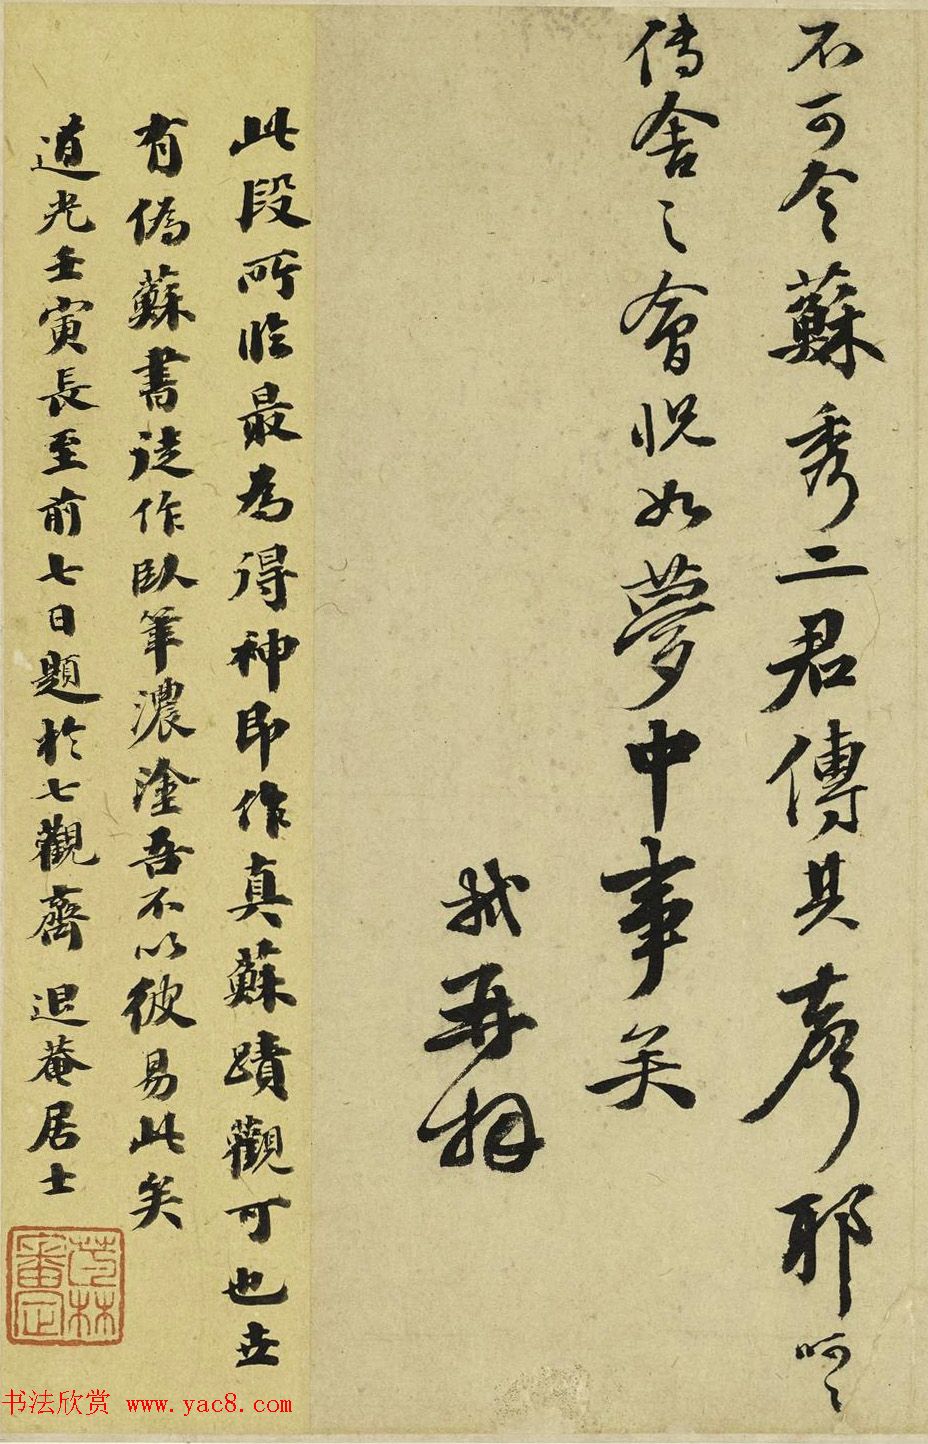 不可令蘇秀二君傳其聲耶呵〻
傳舍之會怳如夢中事矣
軾再拜
此段所临最為得神即作真蘇蹟觀可也世
有偽蘇書徒作臥筆濃塗吾不以彼易此矣
道光壬寅長至前七日題於七觀齋 退菴居士
茞林審定
书法欣赏 www.yac8.com